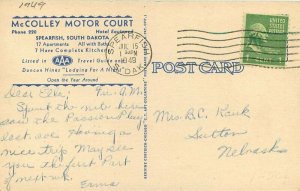 1949
McCOLLEY MOTOR COURT
Phone 220 Hotel Equipment
SPEARFISH, SOUTH DAKOTA
17 Apartments All with Baths
7 Have Complete Kitchens
Listed in AAA Travel Guide and
Duncan Hines "Lodging For A Night"
SPEARFISH
JUL 15
1949
S. DAK.
POST CARD
Dear Ella, Fri. P.M.
Spent the nite here
saw the Passion Play
last eve. Having a
nice trip. May see
you the first Part
of next wk.
Erma
Mrs. B.C. Kauk
Sutton
Nebraska